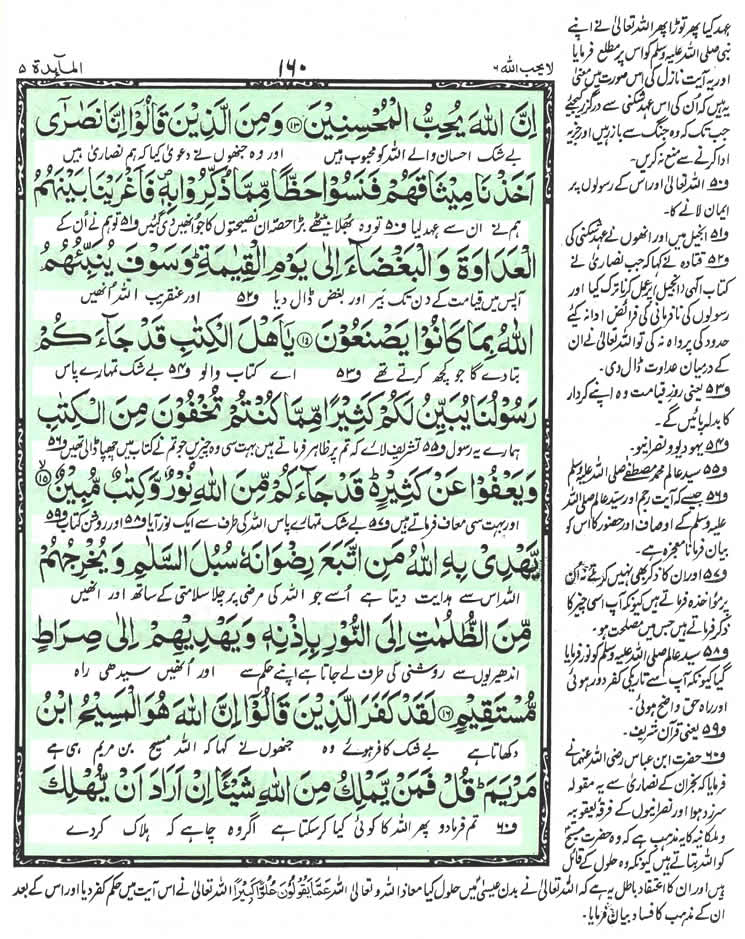 لا یحب اللہ ۶
۱۶۰
المآىِٕدة ۵
اِنَّ اللّٰهَ یُحِبُّ الْمُحْسِنِیْنَ ۱۳ وَمِنَ الَّذِیْنَ قَالُوْۤا اِنَّا نَصٰرٰۤى
بے شک احسان والے اللہ کو محبوب ہیں اور وہ جنھوں نے دعویٰ کیا کہ ہم نصاریٰ ہیں
اَخَذْنَا مِیْثَاقَهُمْ فَنَسُوْا حَظًّا مِّمَّا ذُكِّرُوْا بِهٖ۪ فَاَغْرَیْنَا بَیْنَهُمُ
ہم نے ان سے عہد لیا ف۵۰ تو وہ بھلا بیٹھے بڑا حصہ ان نصیحتوں کا جو انھیں دی گئیں ف۵۱ تو ہم نے اُن کے
الْعَدَاوَةَ وَ الْبَغْضَآءَ اِلٰى یَوْمِ الْقِیٰمَةِؕ وَسَوْفَ یُنَبِّئُهُمُ
آپس میں قیامت کے دن تک بَیر اور بغض ڈال دیا ف۵۲ اور عنقریب اللہ اُنھیں
اللّٰهُ بِمَا كَانُوْا یَصْنَعُوْنَ ۱۴ یٰۤاَهْلَ الْكِتٰبِ قَدْ جَآءَكُمْ
بتا دے گا جو کچھ کرتے تھے ف۵۳ اے کتاب والو ف۵۴ بے شک تمہارے پاس
رَسُوْلُنَا یُبَیِّنُ لَكُمْ كَثِیْرًا مِّمَّا كُنْتُمْ تُخْفُوْنَ مِنَ الْكِتٰبِ
ہمارے یہ رسول ف۵۵ تشریف لائے کہ تم پر ظاہر فرماتے ہیں بہت سی وہ چیزیں جو تم نے کتاب میں چھپا ڈالی تھیں ف۵۶
وَ یَعْفُوْا عَنْ كَثِیْرٍ۬ؕ قَدْ جَآءَكُمْ مِّنَ اللّٰهِ نُوْرٌ وَّ كِتٰبٌ مُّبِیْنٌۙ ۱۵
اور بہت سی معاف فرماتے ہیں ف۵۷ بے شک تمہارے پاس اللہ کی طرف سے ایک نور آیا ف۵۸ اور روشن کتاب ف۵۹
یَّهْدِیْ بِهِ اللّٰهُ مَنِ اتَّبَعَ رِضْوَانَهٗ سُبُلَ السَّلٰمِ وَ یُخْرِجُهُمْ
اللہ اس سے ہدایت دیتا ہے اُسے جو اللہ کی مرضی پر چلا سلامتی کے ساتھ اور انھیں
مِّنَ الظُّلُمٰتِ اِلَى النُّوْرِ بِاِذْنِهٖ وَ یَهْدِیْهِمْ اِلٰى صِرَاطٍ
اندھیریوں سے روشنی کی طرف لے جاتا ہے اپنے حکم سے اور اُنھیں سیدھی راہ
مُّسْتَقِیْمٍ ۱۶ لَقَدْ كَفَرَ الَّذِیْنَ قَالُوْۤا اِنَّ اللّٰهَ هُوَ الْمَسِیْحُ ابْنُ
دکھاتا ہے بے شک کافر ہوئے وہ جنھوں نے کہا کہ اللہ مسیح بن مریم ہی ہے
مَرْیَمَؕ قُلْ فَمَنْ یَّمْلِكُ مِنَ اللّٰهِ شَیْــٴًـا اِنْ اَرَادَ اَنْ یُّهْلِكَ
ف۶۰ تم فرما دو پھر اللہ کا کوئی کیا کر سکتا ہے اگر وہ چاہے کہ ہلاک کر دے
عہد کیا پھر توڑا پھر اللہ تعالیٰ نے اپنے
نبی صلی اللہ علیہ وسلم کو اس پر مطلع فرمایا
اور یہ آیت نازل کی اس صورت میں معنی
یہ ہیں کہ اُن کی اس عہد شکنی سے درگزر کیجئے
جب تک کہ وہ جنگ سے باز رہیں اور جزیہ
ادا کرنے سے منع نہ کریں۔
ف۵۰ اللہ تعالیٰ اور اس کے رسولوں پر
ایمان لانے کا۔
ف۵۱ انجیل میں اور انھوں نے عہد شکنی کی
ف۵۲ قتادہ نے کہا کہ جب نصاریٰ نے
کتاب الٰہی (انجیل) پر عمل کرنا ترک کیا اور
رسولوں کی نافرمانی کی فرائض ادا نہ کیئے
حدود کی پرواہ نہ کی تو اللہ تعالیٰ نے ان
کے درمیان عداوت ڈال دی۔
ف۵۳ یعنی روزِ قیامت وہ اپنے کردار
کا بدلہ پائیں گے۔
ف۵۴ یہودیو و نصرانیو۔
ف۵۵ سید عالم محمد مصطفےٰ صلی اللہ علیہ وسلم
ف۵۶ جیسے کہ آیت رجم اور سید عالم صلی اللہ
علیہ وسلم کے اوصاف اور حضور کا اس کو
بیان فرمانا معجزہ ہے۔
ف۵۷ اور ان کا ذکر بھی نہیں کرتے نہ ان
پر مؤاخذہ فرماتے ہیں کیونکہ آپ اسی چیز کا
ذکر فرماتے ہیں جس میں مصلحت ہو۔
ف۵۸ سید عالم صلی اللہ علیہ وسلم کو نور فرمایا
گیا کیونکہ آپ سے تاریکی کفر دور ہوئی
اور راہ حق واضح ہوئی۔
ف۵۹ یعنی قرآن شریف۔
ف۶۰ حضرت ابن عباس رضی اللہ عنہما نے
فرمایا کہ نجران کے نصاریٰ سے یہ مقولہ
سرزد ہوا اور نصرانیوں کے فرقہ یعقوبیہ
و ملکانیہ کا یہ مذہب ہے کہ وہ حضرت مسیح
کو اللہ بتاتے ہیں کیونکہ وہ حلول کے قائل
ہیں اور ان کا اعتقاد باطل یہ ہے کہ اللہ تعالیٰ نے بدن عیسیٰ میں حلول کیا معاذ اللہ و تعالی اللہ عَمَّا یَقُوْلُوْنَ عُلُوًّا كَبِیْرًا اللہ تعالیٰ نے اس آیت میں حکم کفر دیا اور اس کے بعد
ان کے مذہب کا فساد بیان فرمایا۔